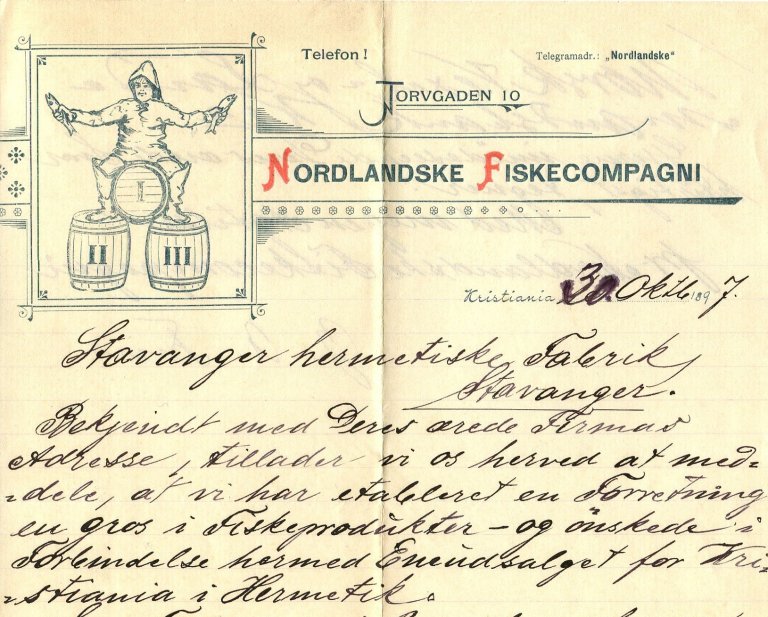 Telefon!
Telegramadr.: „Nordlandske“
TORVGADEN 10
NORDLANDSKE FISKECOMPAGNI
I
II III
Kristiania, 30. Oktb 1897.
Stavanger hermetiske Fabrik,
Stavanger.
Bekjendt med Deres ærede Firmas
Adresse, tillader vi os herved at med-
=dele, at vi har etableret en Forretning
en gros i Fiskeprodukter – og önskede i
Forbindelse hermed Eneudsalget for Kri-
=stiania i Hermetik.